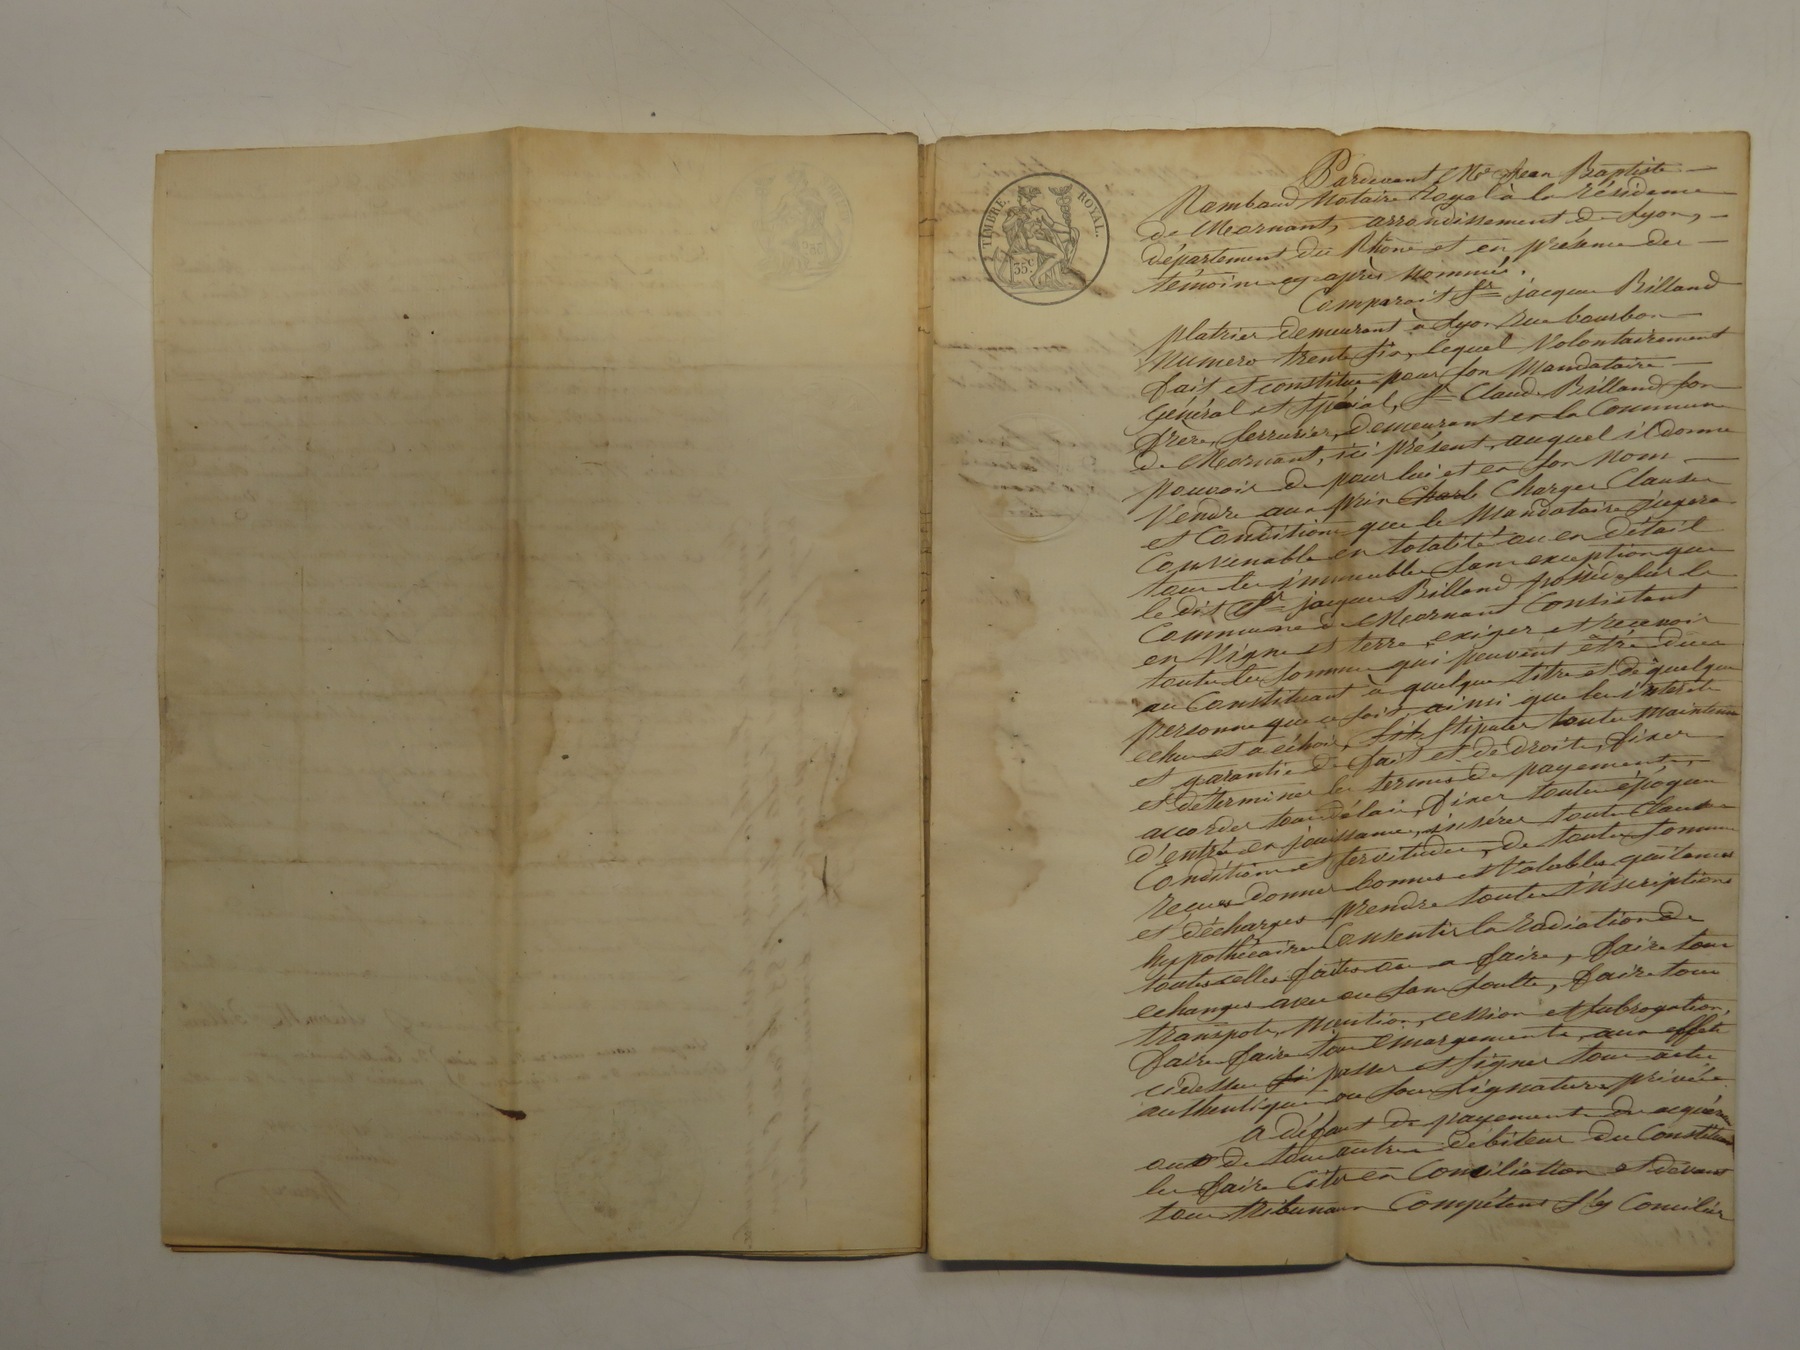 TIMBRE ROYAL.
35 c.
Pardevant Me Jean Baptiste
Rambaud Notaire Royal à la résidence
de Mornant, arrondissement de Lyon,
département du Rhône et en présence des
témoins cy après nommés.
Comparait Sr jacques Billand
platrier demeurant à Lyon rue bourbon
Numero trente six, lequel Volontairement
fait et constitue pour son Mandataire
Général et Spécial, Sr Claude Billand son
frere, serrurier, demeurant en la Commune
de Mornant, ici présent, auquel il donne
pouvoir de pour lui et en son nom
Vendre aux prix Charb Charges Clauses
et Conditions que le Mandataire jugera
Convenable en totalité ou en détail
tous les immeubles sans exception que
le dit Sr jacques Billand possède sur la
Commune de Mornant Consistant
en Vigne et terre, exiger et recevoir
toutes les sommes qui peuvent être dues
au Constituant à quelque titre et de quelque
personne que ce soit, ainsi que les intérêts
echus et à échoir, stipuler toutes maintenues
et garanties de fait et de droits, fixer
et déterminer les termes de payements,
accorder tous délais, fixer toutes époques
d'entré en jouissance, insérer toutes Clauses
Conditions et servitudes, de toutes sommes
reçues donner bonnes et Valables quitances
et décharges prendre toutes inscriptions
hypothécaires Consentir la radiation de
toutes celles faites ou a faire, faire tous
echanges avec ou sans soulte, faire tous
transports, Mention, cession et subrogation,
faire faire tous émargements, aux effets
cidessus passer et signer tous actes
authentiques ou sous signatures privées.
A défaut de payements des acquéreurs
ou de tous autres débiteurs du Constituant
les faire Citer en Conciliation et devant
tous tribunaux Compétens s'y Concilier